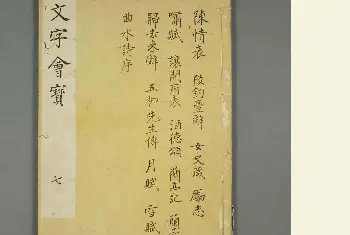 陳情表 釣臺辭 女史箴 勵志
嘯賦 讓開府表 酒德頌 蘭亭記 蘭
歸去來辭 五柳先生傳 月賦 雪賦
曲水詩序
文字會寶 七